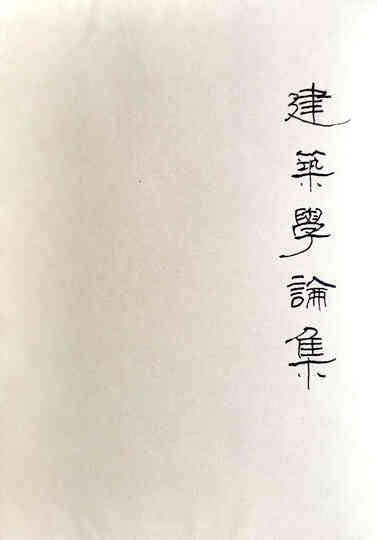 建築學論集